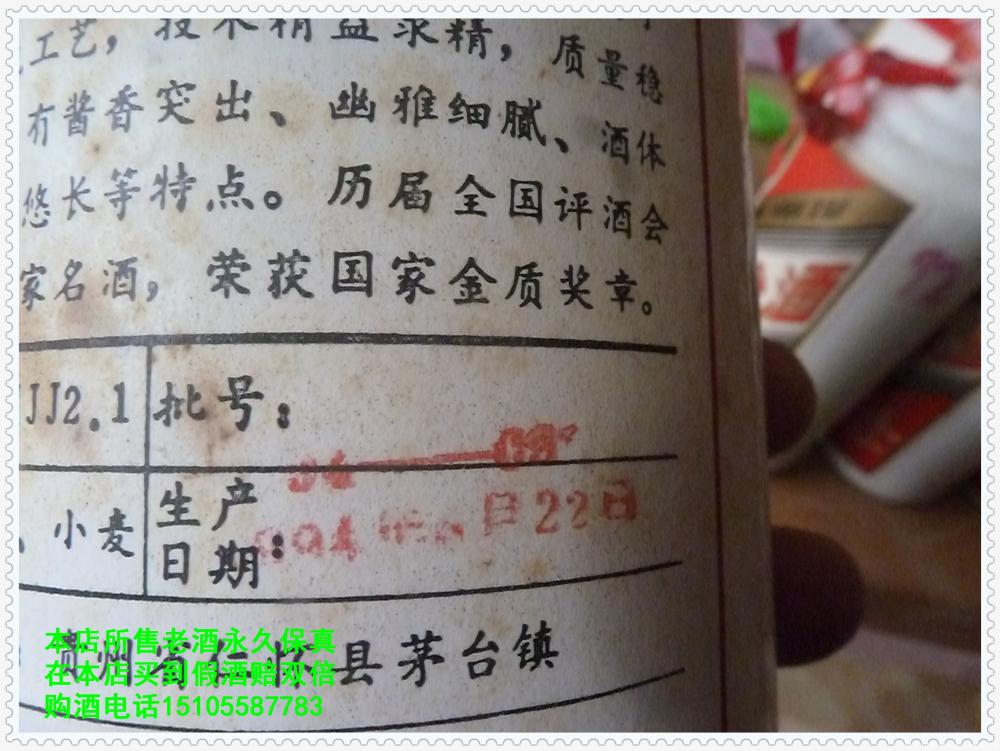 工艺，技术精益求精，质量稳
有酱香突出、幽雅细腻、酒体
悠长等特点。历届全国评酒会
家名酒，荣获国家金质奖章。
JJ2.1 批号：
、小麦 生产日期： 22日
贵州省仁怀县茅台镇
本店所售老酒永久保真
在本店买到假酒赔双倍
购酒电话15105587783